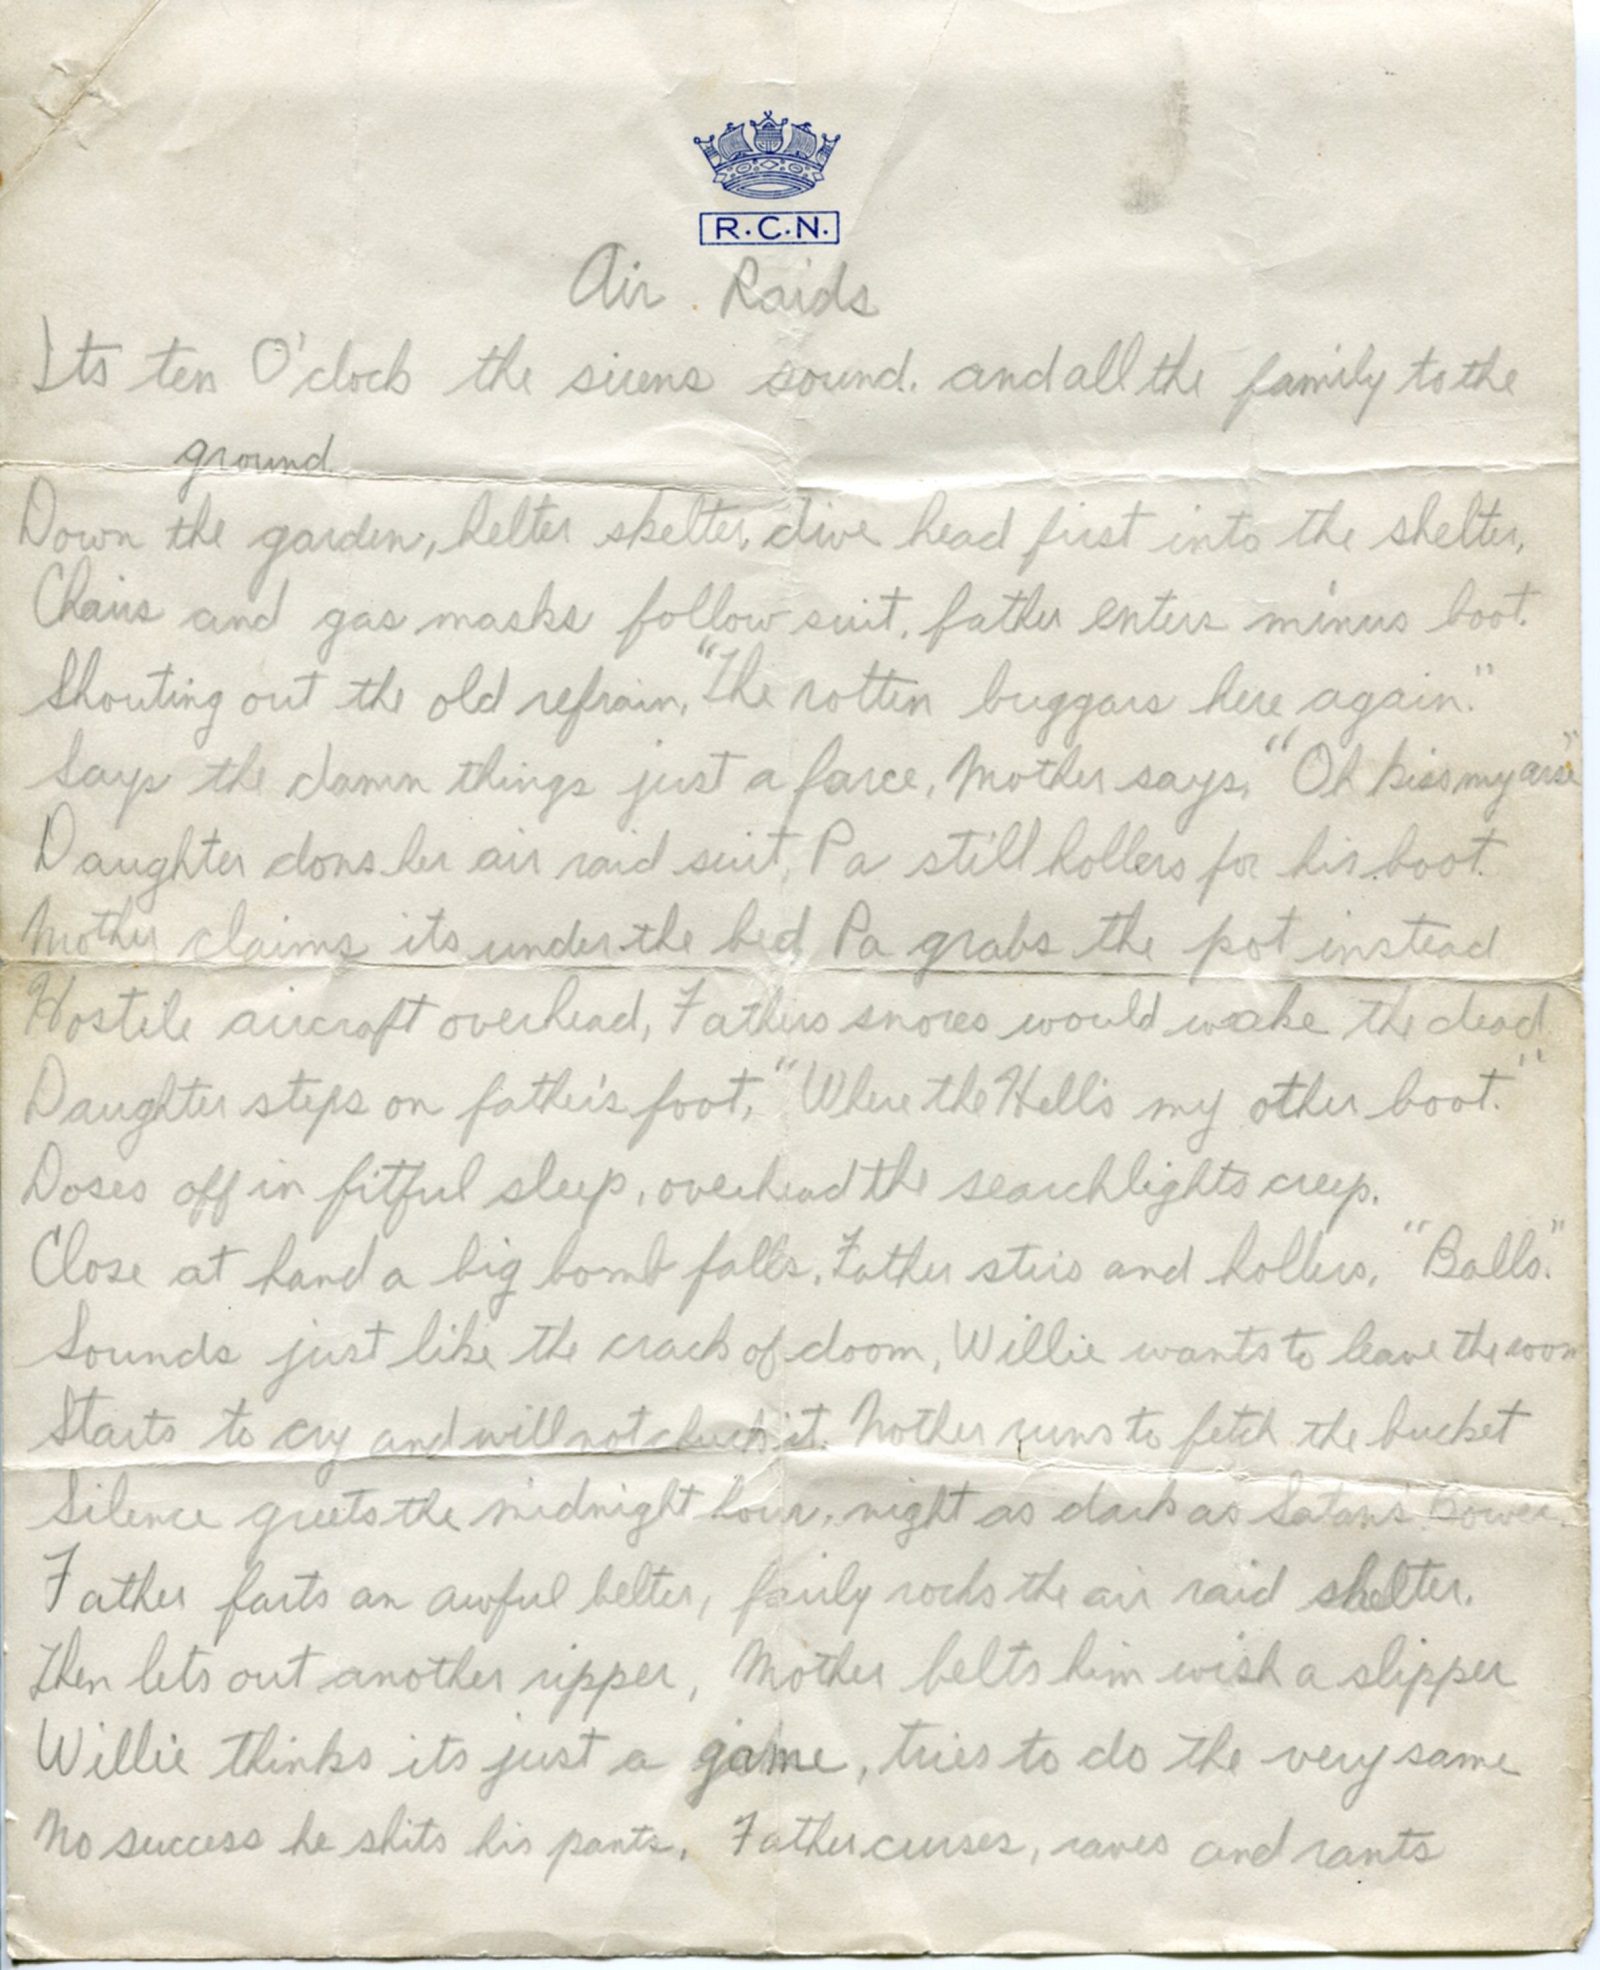 R.C.N.
Air Raids
Its ten O'clock the sirens sound. and all the family to the
ground
Down the garden, helter skelter, dive head first into the shelter,
Chairs and gas masks follow suit, father enters minus boot.
Shouting out the old refrain, "The rotten buggars here again."
Says the damn things just a farce, Mother says, "Oh kiss my arse"
Daughter dons her air raid suit, Pa still hollers for his boot.
Mother claims its under the bed Pa grabs the pot instead
Hostile aircraft overhead, Fathers snores would wake the dead
Daughter steps on father's foot, "Where the Hell's my other boot."
Doses off in fitful sleep, overhead the searchlights creep.
Close at hand a big bomb falls, Father stirs and hollers, "Balls."
Sounds just like the crack of doom, Willie wants to leave the room
Starts to cry and will not chuck it. Mother runs to fetch the bucket
Silence greets the midnight hour, night as dark as Satan's Bower.
Father farts an awful belter, fairly rocks the air raid shelter.
Then lets out another ripper, Mother belts him wish a slipper
Willie thinks its just a game, tries to do the very same
No success he shits his pants, Father curses, raves and rants